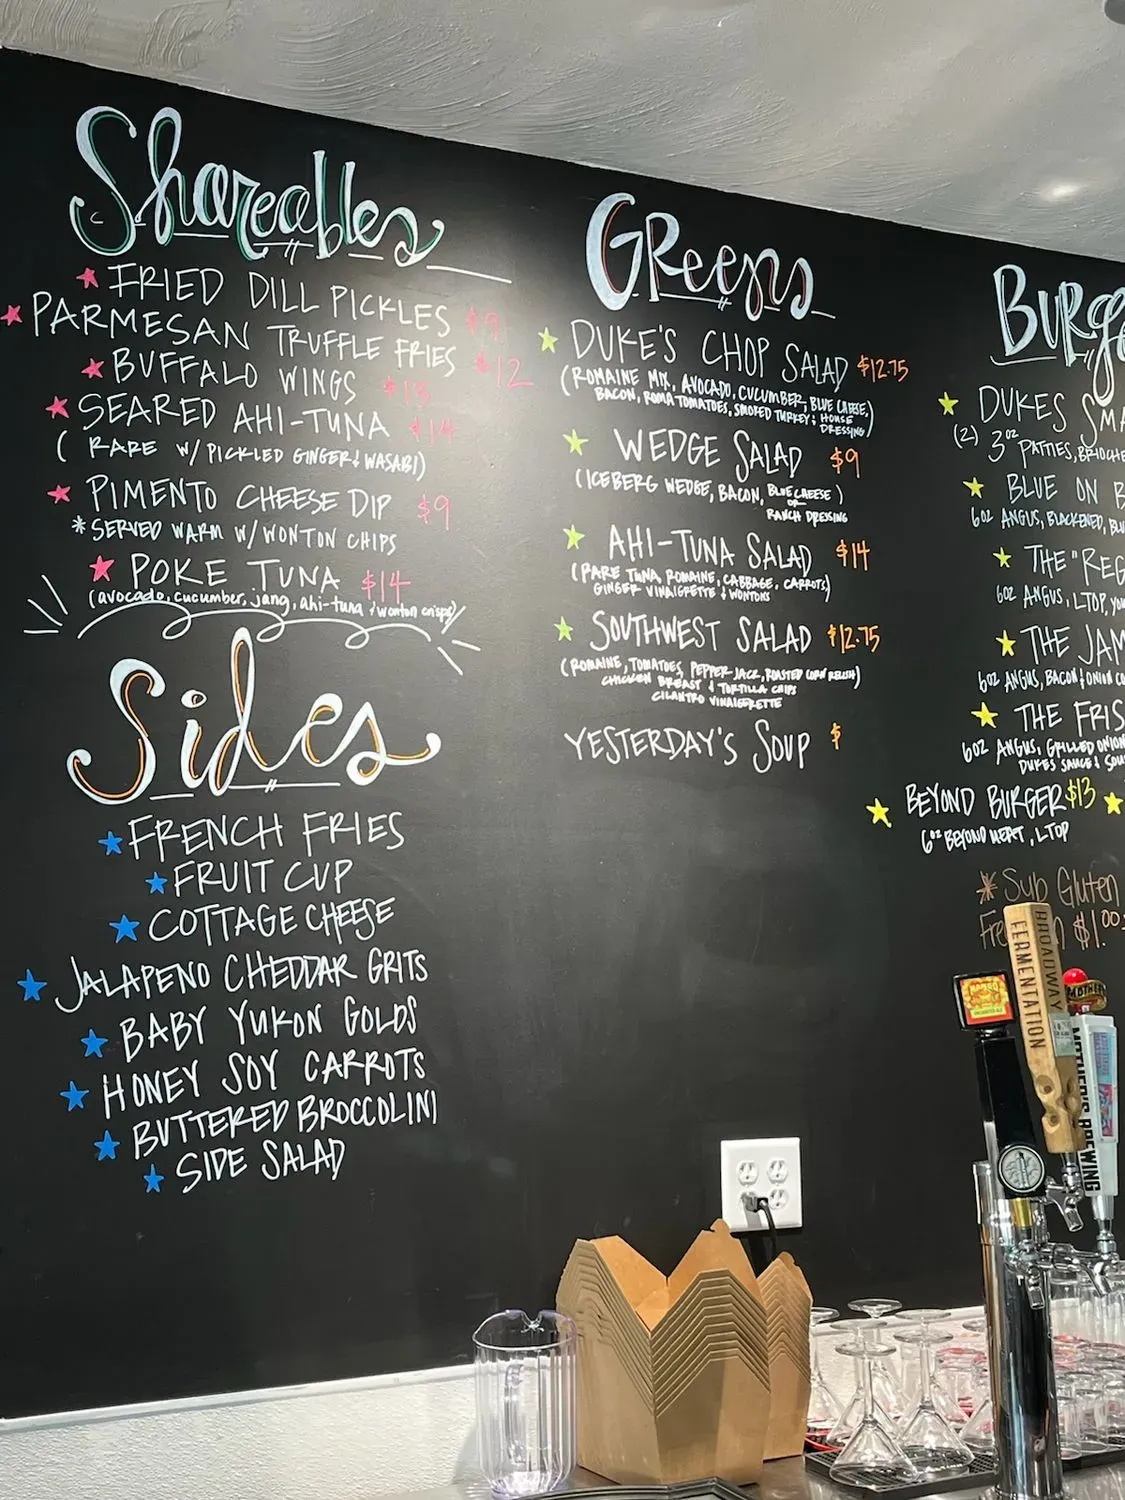 Shareables
FRIED DILL PICKLES $9
PARMESAN TRUFFLE FRIES $12
BUFFALO WINGS $13
SEARED AHI-TUNA $14
( RARE W/ PICKLED GINGER & WASABI)
PIMENTO CHEESE DIP $9
*SERVED WARM W/ WONTON CHIPS
POKE TUNA $14
(avocado, cucumber, jang, ahi-tuna & wonton crisps)
Sides
FRENCH FRIES
FRUIT CUP
COTTAGE CHEESE
JALAPENO CHEDDAR GRITS
BABY YUKON GOLDS
HONEY SOY CARROTS
BUTTERED BROCCOLINI
SIDE SALAD
GReens
DUKE'S CHOP SALAD $12.75
(ROMAINE MIX, AVOCADO, CUCUMBER, BLUE CHEESE,
BACON, ROMA TOMATOES, SMOKED TURKEY & HOUSE
DRESSING)
WEDGE SALAD $9
(ICEBERG WEDGE, BACON, BLUE CHEESE)
OR
RANCH DRESSING
AHI-TUNA SALAD $14
(RARE TUNA, ROMAINE, CABBAGE, CARROTS)
GINGER VINAIGRETTE & WONTONS
SOUTHWEST SALAD $12.75
(ROMAINE, TOMATOES, PEPPER-JACK, ROASTED CORN RELISH)
CHICKEN BREAST & TORTILLA CHIPS
CILANTRO VINAIGRETTE
YESTERDAY'S SOUP $
BURGE
DUKES SMA
(2) 3oz PATTIES, BRIOCHE
BLUE ON B
6oz ANGUS, BLACKENED, BLU
THE "REG
6oz ANGUS, LTOP, YOU
THE JAM
6oz ANGUS, BACON & ONION CO
THE FRIS
6oz ANGUS, GRILLED ONION
DUKES SAUCE & SOU
BEYOND BURGER $13
6oz BEYOND MEAT, LTOP
* Sub Gluten
Fre n $1.00
BROADWAY
FERMENTATION
MOTHER'S
MOTHER'S BREWING